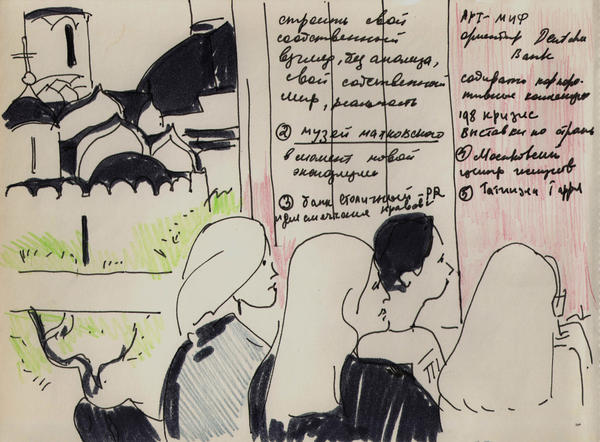 строить свой
собственный
взгляд, без анализа,
свой собственный
мир, реальность
② музей маяковского
в момент новой
экспозиции
③ банк столичный - PR
АРТ-МИФ
ориентир Deutche
Bank
собирать корпоро-
тивную коллекцию
198 кризис
выставки по стране
④ Московский
центр искусств
⑤